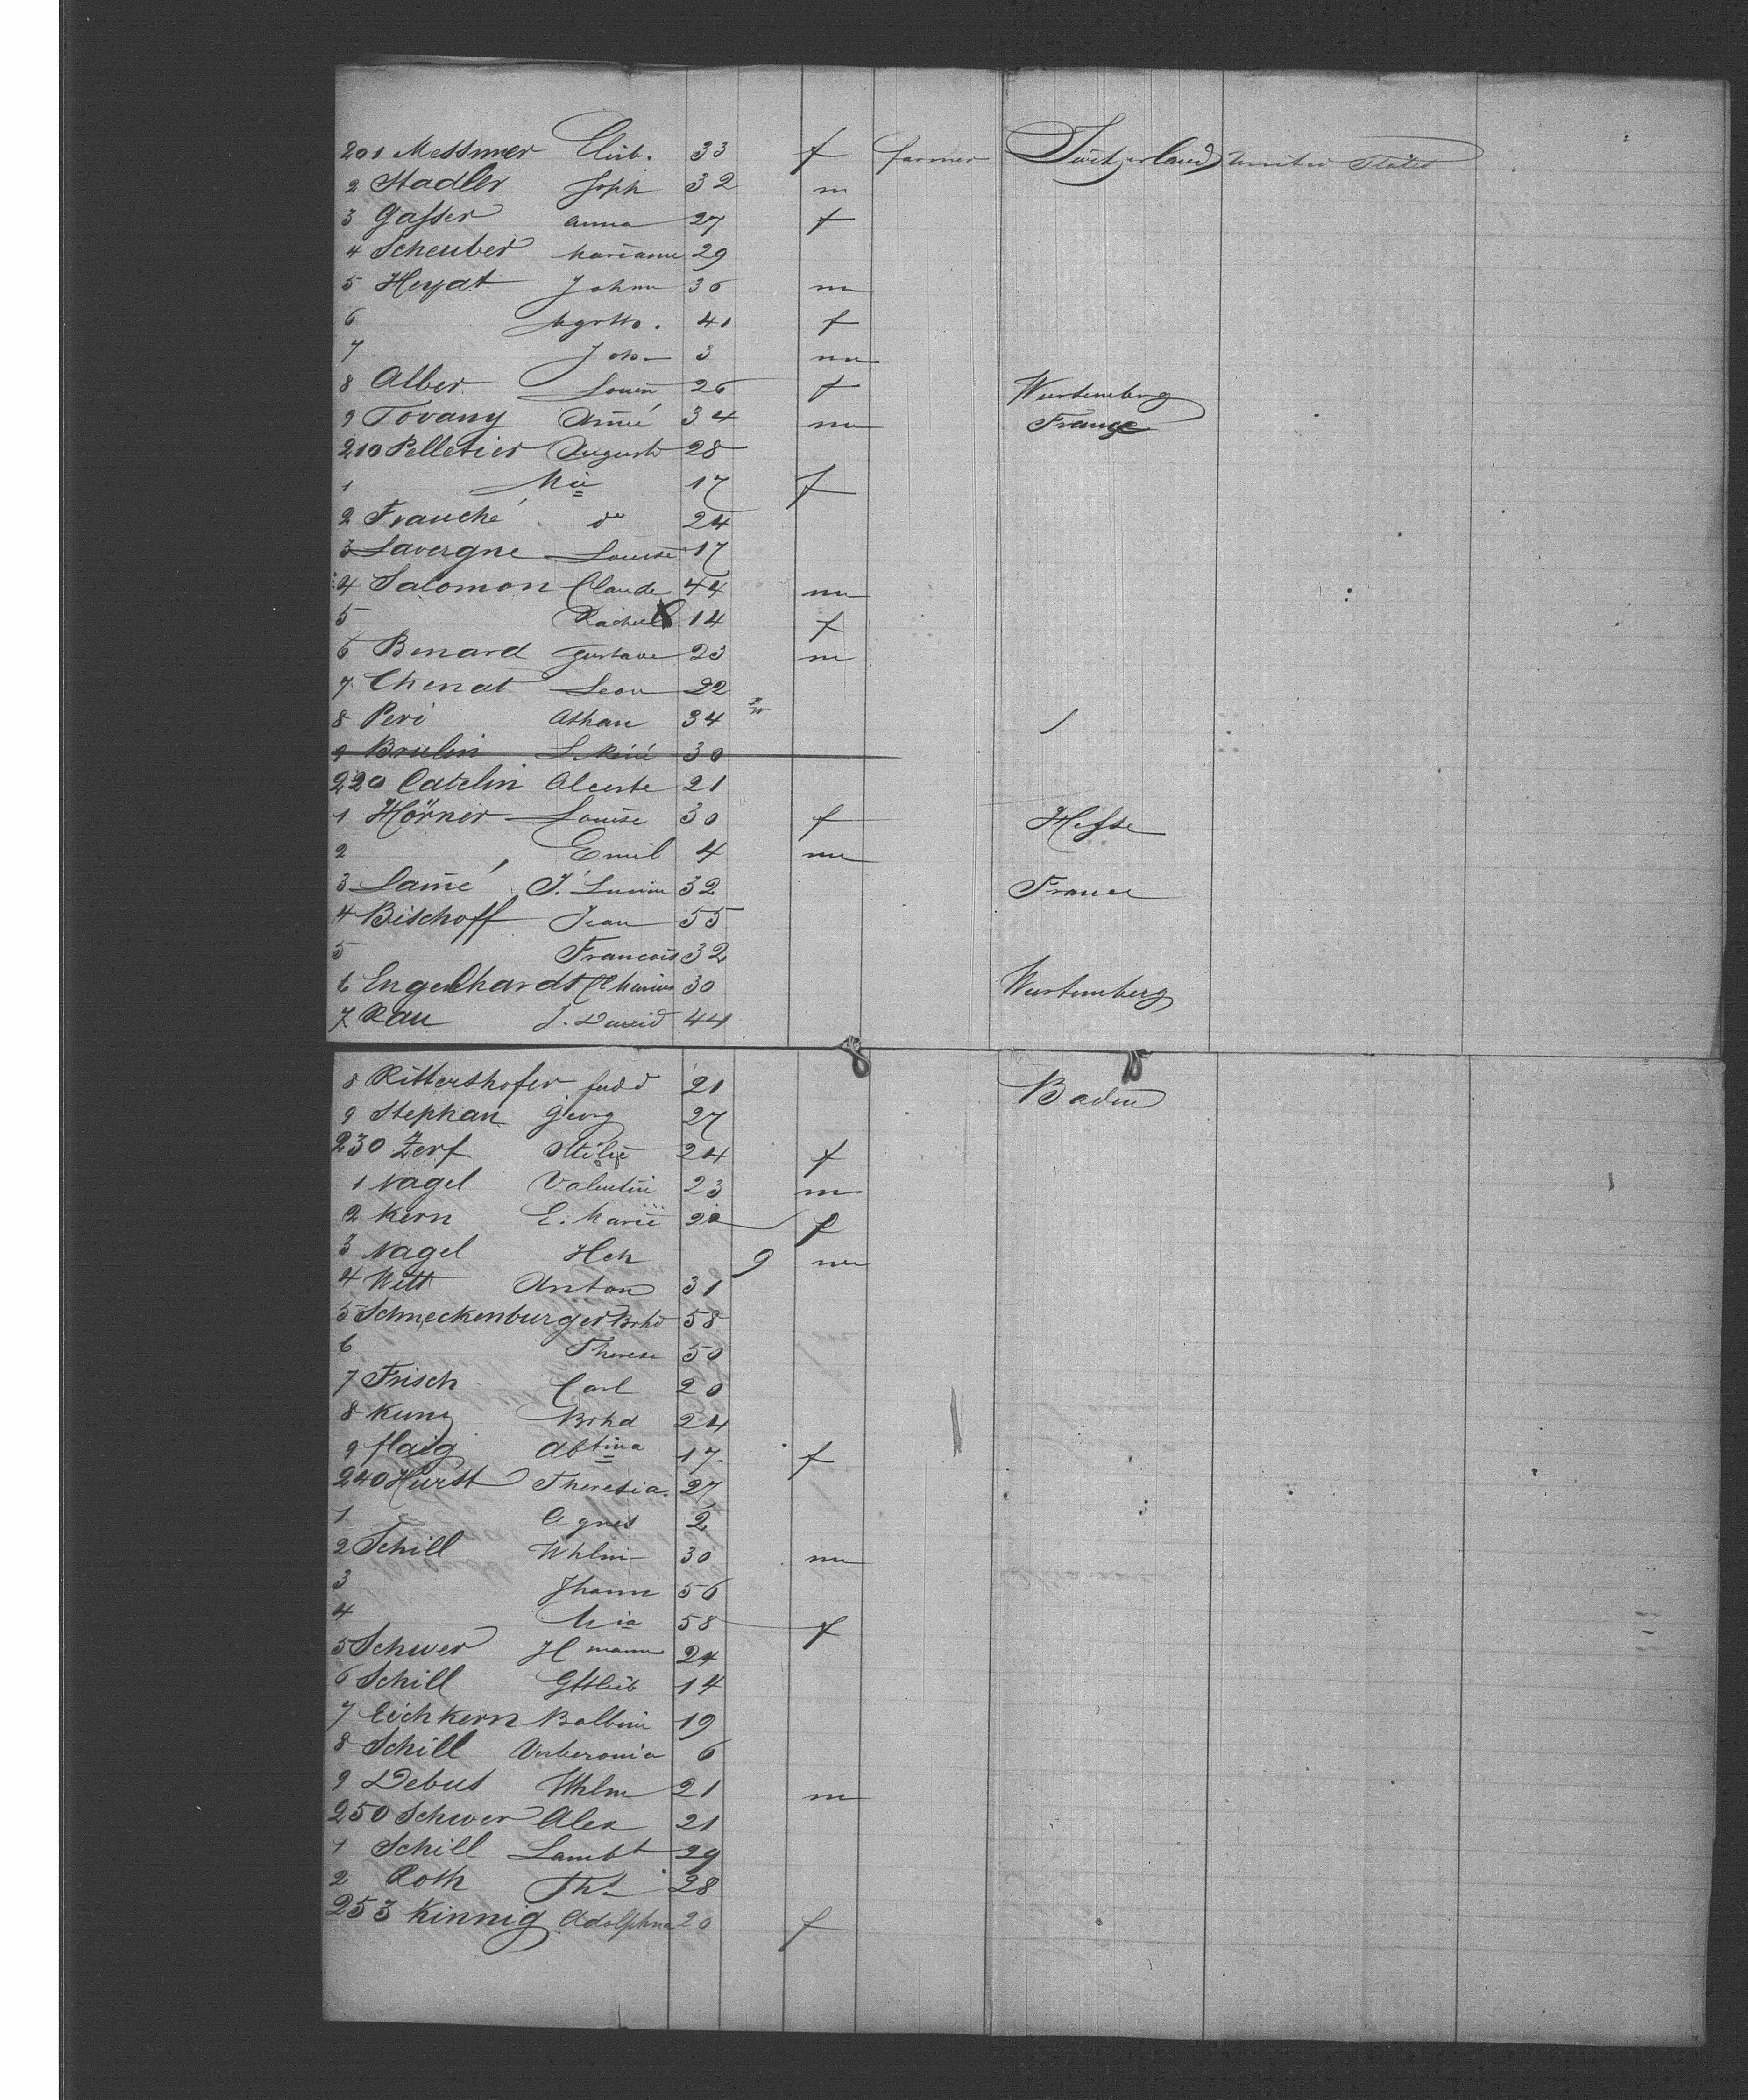 201 Messmer Elisb. 33 f farmer Switzerland United States
2 Stadler Joph 32 m
3 Gasser anna 27 f
4 Scheuber Marianne 29
5 Heyat Johnn 36 m
6 41 f
7 Joh 3 m
8 Alber Louise 26 f Wurtemberg
9 Tovany Aimé 34 m France
210 Pelletier August 28
1 Mie 17 f
2 Franché do 24
3 Lavergne Louise 17
4 Salomon Claude 44 m
5 Rachel 14 f
6 Benard Gustave 23 m
7 Chenat Leon 22
8 Peri Athan 34
9 Brulin 30
220 Catelin Alceste 21
1 Hörner Louise 30 f Hesse
2 Emil 4 m
3 Lamé J. Lucien 32 France
4 Bischoff Jean 55
5 Francois 32
6 Engelhardt 30 Wurtemberg
7 Rau J. David 44
8 Rittershofer ferdd 21 Baden
9 Stephan Georg 27
230 Zerf Ottilie 24 f
1 Nagel Valentin 23 m
2 Kern E. Marie 20 f
3 Nagel Hch 9 m
4 Witt Anton 31
5 Schneckenburger Brhd 58
6 Therese 50
7 Frisch Carl 20
8 Kunz Brhd 24
9 flaig Abtina 17 f
240 Hurst Theresia. 27
1 Agnes 2
2 Schill Whlm 30 m
3 Jhann 56
4 Mia 58 f
5 Schwer Hmann 24
6 Schill Gttlieb 14
7 Eichkern Balbine 19
8 Schill 6
9 Debus Whlm 21 m
250 Schwer Alex 21
1 Schill Lambt 29
2 Roth Ths 28
253 Kinnig Adolphna 20 f